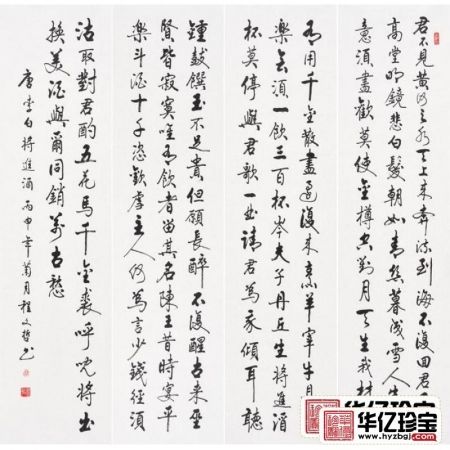 君不見黃河之水天上來奔流到海不復回君
高堂明鏡悲白髮朝如青絲暮成雪人生
意須盡歡莫使金樽空對月天生我材
有用千金散盡還復來烹羊宰牛且
樂會須一飲三百杯岑夫子丹丘生將進酒
杯莫停與君歌一曲請君為我傾耳聽
鍾鼓饌玉不足貴但願長醉不復醒古來聖
賢皆寂寞唯有飲者留其名陳王昔時宴平
樂斗酒十千恣歡謔主人何為言少錢徑須
沽取對君酌五花馬千金裘呼兒將出
換美酒與爾同銷萬古愁
唐李白將進酒丙申年菊月程文哲書
华亿珍宝
www.hyzbgj.com
华亿珍宝
www.hyzbgj.com